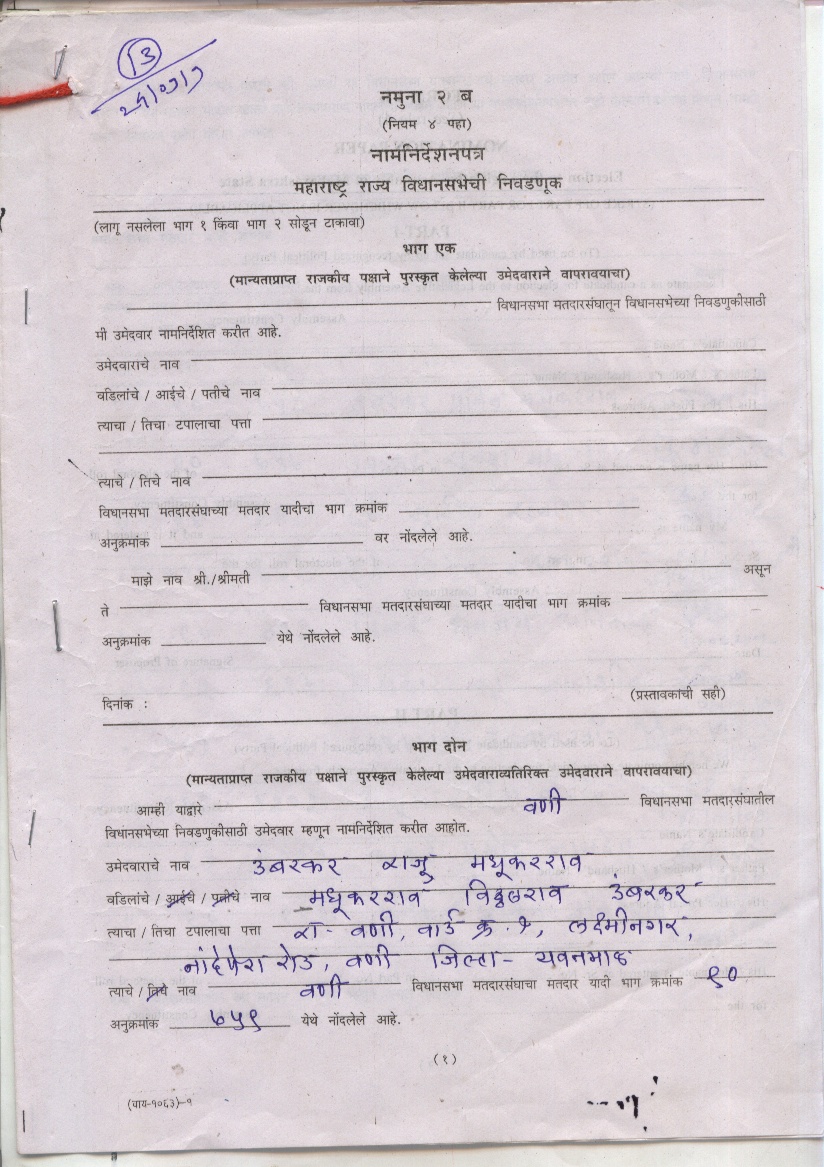 १३
नमुना २ ब
(नियम ४ पहा)
नामनिर्देशनपत्र
महाराष्ट्र राज्य विधानसभेची निवडणूक
(लागू नसलेला भाग १ किंवा भाग २ सोडून टाकावा)
भाग एक
(मान्यताप्राप्त राजकीय पक्षाने पुरस्कृत केलेल्या उमेदवाराने वापरावयाचा)
विधानसभा मतदारसंघातून विधानसभेच्या निवडणुकीसाठी
मी उमेदवार नामनिर्देशित करीत आहे.
उमेदवाराचे नाव
वडिलांचे / आईचे / पतीचे नाव
त्याचा / तिचा टपालाचा पत्ता
त्याचे / तिचे नाव
विधानसभा मतदारसंघाच्या मतदार यादीचा भाग क्रमांक
अनुक्रमांक वर नोंदलेले आहे.
माझे नाव श्री./श्रीमती असून
ते विधानसभा मतदारसंघाच्या मतदार यादीचा भाग क्रमांक
अनुक्रमांक येथे नोंदलेले आहे.
दिनांक : (प्रस्तावकाची सही)
भाग दोन
(मान्यताप्राप्त राजकीय पक्षाने पुरस्कृत केलेल्या उमेदवाराव्यतिरिक्त उमेदवाराने वापरावयाचा)
आम्ही याद्वारे वणी विधानसभा मतदारसंघातील
विधानसभेच्या निवडणुकीसाठी उमेदवार म्हणून नामनिर्देशित करीत आहोत.
उमेदवाराचे नाव उंबरकर राजू मधूकरराव
वडिलांचे / आईचे / पतीचे नाव मधूकरराव विठ्ठलराव उंबरकर
त्याचा / तिचा टपालाचा पत्ता रा- वणी, वार्ड क्र. १, लक्ष्मीनगर,
नांदेपेरा रोड, वणी जिल्हा- यवतमाळ
त्याचे / तिचे नाव वणी विधानसभा मतदारसंघाचा मतदार यादी भाग क्रमांक ९०
अनुक्रमांक ७५९ येथे नोंदलेले आहे.
(१)
(वाय-१०६३)-१